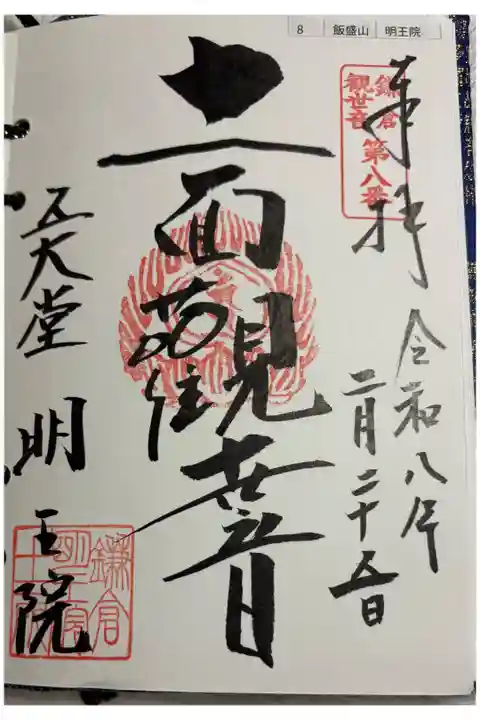 8 飯盛山 明王院
奉拝
鎌倉
観世音
第八番
令和八年
二月二十五日
十一面観世音
五大堂
明王院
鎌倉